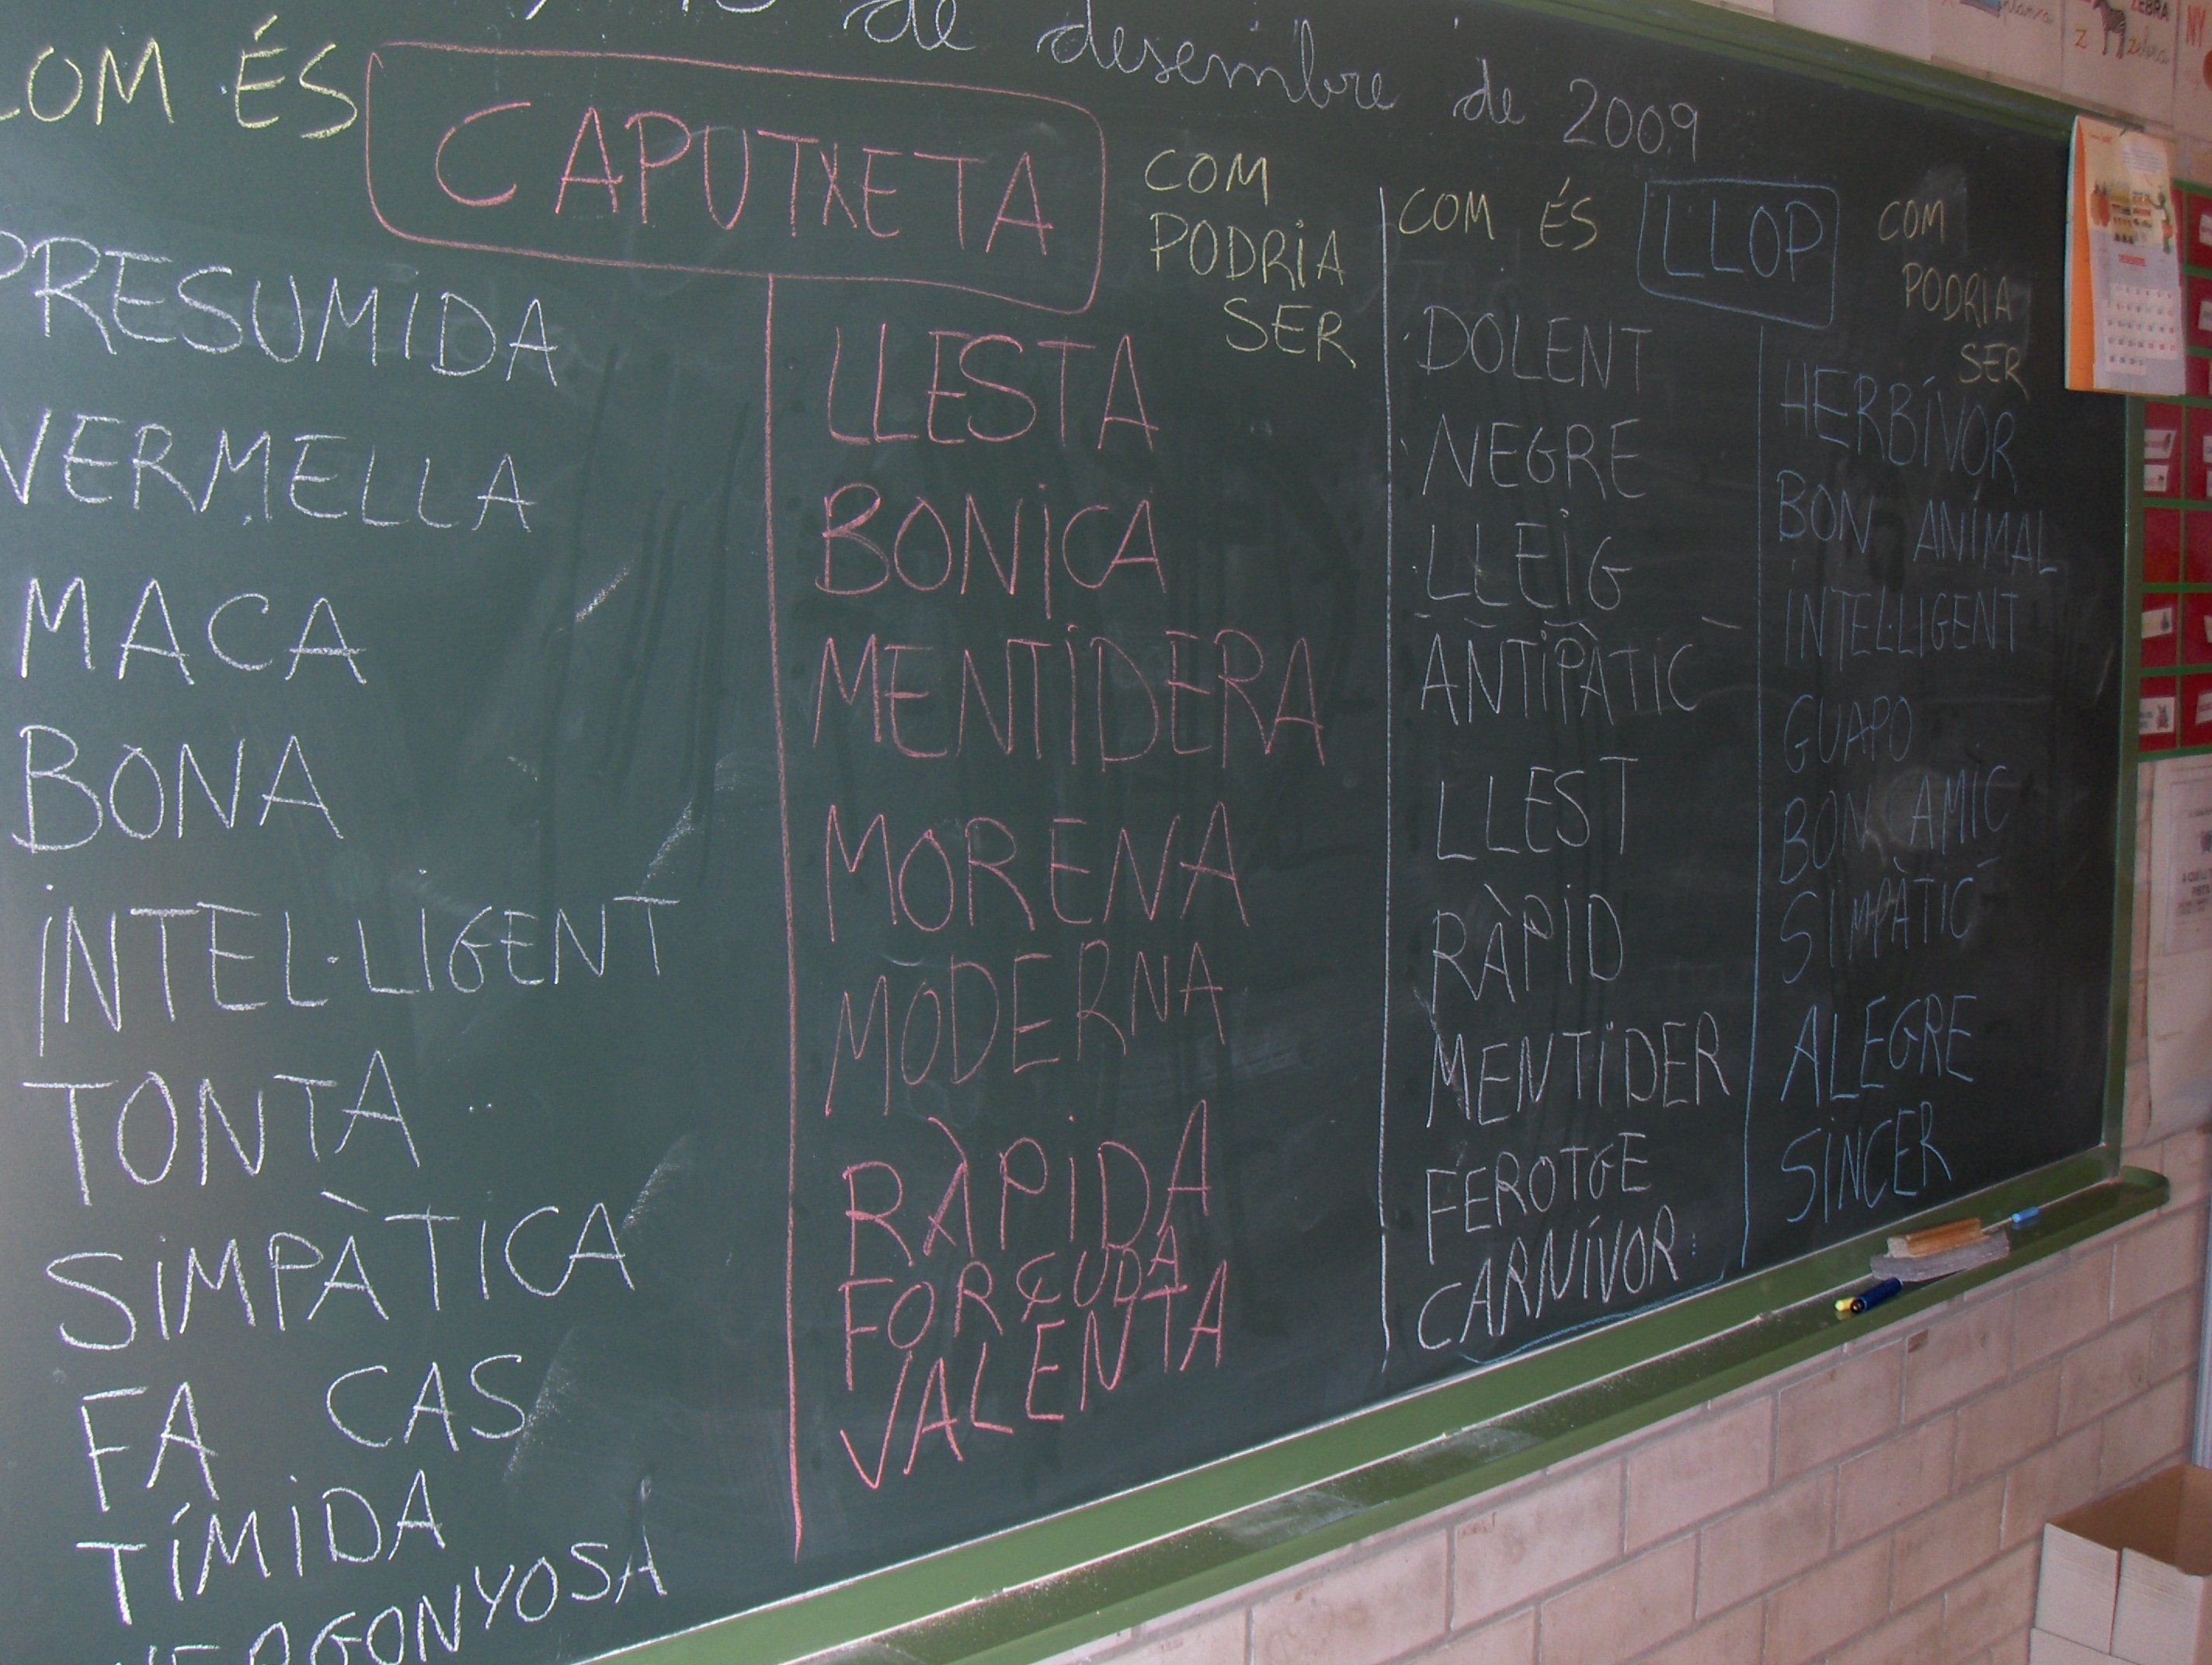 de desembre de 2009
COM ÉS
CAPUTXETA
COM
PODRIA
SER
PRESUMIDA
VERMELLA
MACA
BONA
INTEL·LIGENT
TONTA
SIMPÀTICA
FA CAS
TÍMIDA
VERGONYOSA
LLESTA
BONICA
MENTIDERA
MORENA
MODERNA
RÀPIDA
FORÇUDA
VALENTA
COM ÉS
LLOP
COM
PODRIA
SER
DOLENT
NEGRE
LLEIG
ANTIPÀTIC
LLEST
RÀPID
MENTIDER
FEROTGE
CARNÍVOR
HERBÍVOR
BON ANIMAL
INTEL·LIGENT
GUAPO
BON AMIC
SIMPÀTIC
ALEGRE
SINCER
ZEBRA
Z zebra
NY